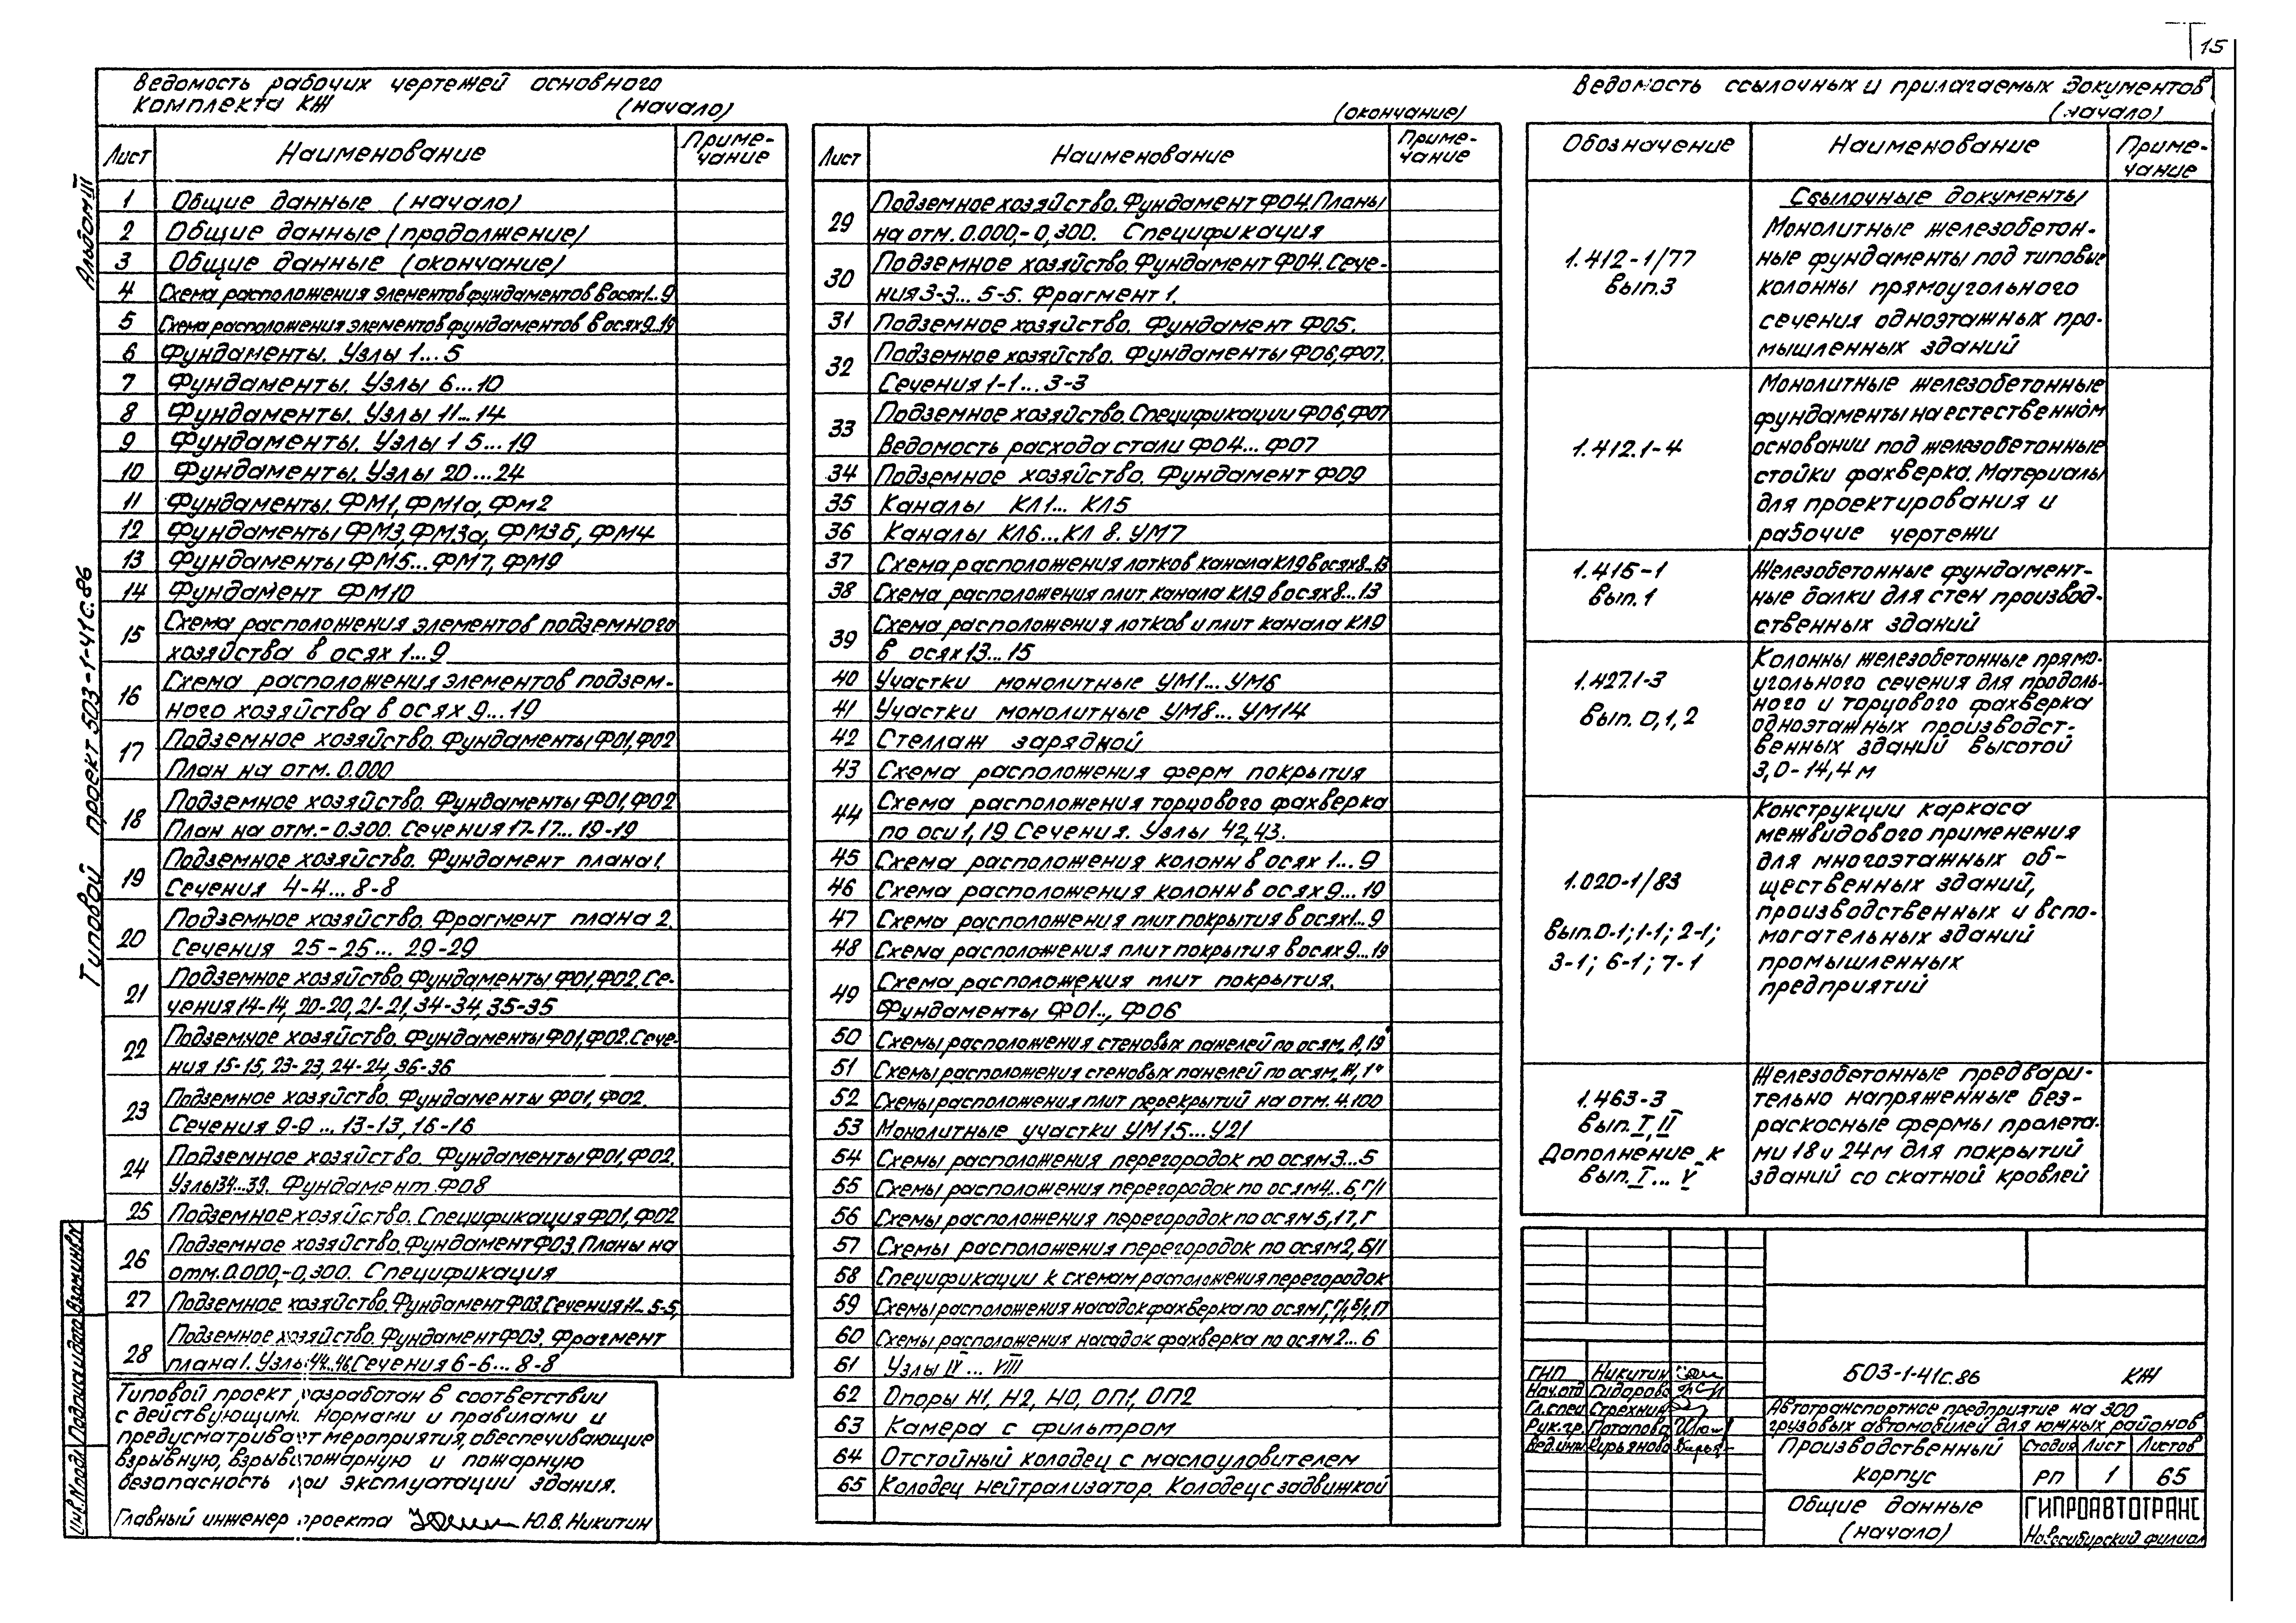 15
Ведомость рабочих чертежей основного
комплекта КЖ (начало)
Лист Наименование Приме-
чание
1 Общие данные (начало)
2 Общие данные (продолжение)
3 Общие данные (окончание)
4 Схема расположения элементов фундаментов в осях 1...9
5 Схема расположения элементов фундаментов в осях 9...19
6 Фундаменты. Узлы 1...5
7 Фундаменты. Узлы 6...10
8 Фундаменты. Узлы 11...14
9 Фундаменты. Узлы 15...19
10 Фундаменты. Узлы 20...24
11 Фундаменты. ФМ1, ФМ1а, ФМ2
12 Фундаменты ФМ3, ФМ3а, ФМ3б, ФМ4
13 Фундаменты ФМ5...ФМ7, ФМ9
14 Фундамент ФМ10
15 Схема расположения элементов подземного
хозяйства в осях 1...9
16 Схема расположения элементов подзем-
ного хозяйства в осях 9...19
17 Подземное хозяйство. Фундаменты Ф01, Ф02
План на отм. 0.000
18 Подземное хозяйство. Фундаменты Ф01, Ф02
План на отм. -0.300. Сечения 17-17...19-19
19 Подземное хозяйство. Фундамент плана 1.
Сечения 4-4...8-8
20 Подземное хозяйство. Фрагмент плана 2.
Сечения 25-25...29-29
21 Подземное хозяйство. Фундаменты Ф01, Ф02. Се-
чения 14-14, 20-20, 21-21, 34-34, 35-35
22 Подземное хозяйство. Фундаменты Ф01, Ф02. Сече-
ния 15-15, 23-23, 24-24, 36-36
23 Подземное хозяйство. Фундаменты Ф01, Ф02.
Сечения 9-9...13-13, 16-16
24 Подземное хозяйство. Фундаменты Ф01, Ф02.
Узлы 34...39. Фундамент Ф08
25 Подземное хозяйство. Спецификация Ф01, Ф02
26 Подземное хозяйство. Фундамент Ф03. Планы на
отм. 0.000, -0,300. Спецификация
27 Подземное хозяйство. Фундамент Ф03. Сечения 1-1...5-5,
28 Подземное хозяйство. Фундамент Ф03. Фрагмент
плана 1. Узлы 44...46. Сечения 6-6...8-8
Типовой проект разработан в соответствии
с действующими нормами и правилами и
предусматривает мероприятия, обеспечивающие
взрывную, взрывопожарную и пожарную
безопасность при эксплуатации здания.
Главный инженер проекта Ю.В. Никитин
(окончание)
Лист Наименование Приме-
чание
29 Подземное хозяйство. Фундамент Ф04. Планы
на отм. 0.000, -0,300. Спецификация
30 Подземное хозяйство. Фундамент Ф04. Сече-
ния 3-3...5-5. Фрагмент 1.
31 Подземное хозяйство. Фундамент Ф05.
32 Подземное хозяйство. Фундаменты Ф06, Ф07.
Сечения 1-1...3-3
33 Подземное хозяйство. Спецификации Ф06, Ф07
Ведомость расхода стали Ф04...Ф07
34 Подземное хозяйство. Фундамент Ф09
35 Каналы КЛ1...КЛ5
36 Каналы КЛ6...КЛ8. УМ7
37 Схема расположения лотков канала КЛ9 в осях 8...13
38 Схема расположения плит канала КЛ9 в осях 8...13
39 Схема расположения лотков и плит канала КЛ9
в осях 13...15
40 Участки монолитные УМ1...УМ6
41 Участки монолитные УМ8...УМ14
42 Стеллаж зарядной
43 Схема расположения ферм покрытия
44 Схема расположения торцового фахверка
по оси 1, 19 Сечения. Узлы 42, 43.
45 Схема расположения колонн в осях 1...9
46 Схема расположения колонн в осях 9...19
47 Схема расположения плит покрытия в осях 1...9
48 Схема расположения плит покрытия в осях 9...19
49 Схема расположения плит покрытия.
Фундаменты Ф01.., Ф06
50 Схемы расположения стеновых панелей по осям „А, 19"
51 Схемы расположения стеновых панелей по осям „Ж, 1"
52 Схемы расположения плит перекрытий на отм. 4.100
53 Монолитные участки УМ15...У21
54 Схемы расположения перегородок по осям 3...5
55 Схемы расположения перегородок по осям 4...6, Г/1
56 Схемы расположения перегородок по осям 5, 17, Г
57 Схемы расположения перегородок по осям 2, Б/1
58 Спецификации к схемам расположения перегородок
59 Схемы расположения насадок фахверка по осям Г, Г/1, Б/1, П
60 Схемы расположения насадок фахверка по осям 2...6
61 Узлы IV...VIII
62 Опоры Н1, Н2, НО, ОП1, ОП2
63 Камера с фильтром
64 Отстойный колодец с маслоуловителем
65 Колодец нейтрализатор. Колодец с задвижкой
Ведомость ссылочных и прилагаемых документов
(начало)
Обозначение Наименование Приме-
чание
Ссылочные документы
1.412-1/77
вып. 3
Монолитные железобетон-
ные фундаменты под типовые
колонны прямоугольного
сечения одноэтажных про-
мышленных зданий
1.412.1-4
Монолитные железобетонные
фундаменты на естественном
основании под железобетонные
стойки фахверка. Материалы
для проектирования и
рабочие чертежи
1.415-1
вып. 1
Железобетонные фундамент-
ные балки для стен производ-
ственных зданий
1.427.1-3
вып. 0, 1, 2
Колонны железобетонные прямо-
угольного сечения для продоль-
ного и торцового фахверка
одноэтажных производст-
венных зданий высотой
3,0-14,4 м
1.020-1/83
вып. 0-1; 1-1; 2-1;
3-1; 6-1; 7-1
Конструкции каркаса
межвидового применения
для многоэтажных об-
щественных зданий,
производственных и вспо-
могательных зданий
промышленных
предприятий
1.463-3
вып. I, II
Дополнение к
вып. I...V
Железобетонные предвари-
тельно напряженные без-
раскосные фермы пролета-
ми 18 и 24 м для покрытий
зданий со скатной кровлей
ГИП Никитин
Нач.отд Сидорова
Гл.спец Стрехнин
Рук.гр. Потапова
Вед.инж. Кирьянова
503-1-41с.86 КЖ
Автотранспортное предприятие на 300
грузовых автомобилей для южных районов
Производственный
корпус
Стадия Лист Листов
РП 1 65
Общие данные
(начало)
ГИПРОАВТОТРАНС
Новосибирский филиал
Альбом III
Типовой проект 503-1-41с.86
Инв.№подл. Подпись и дата Взам.инв.№